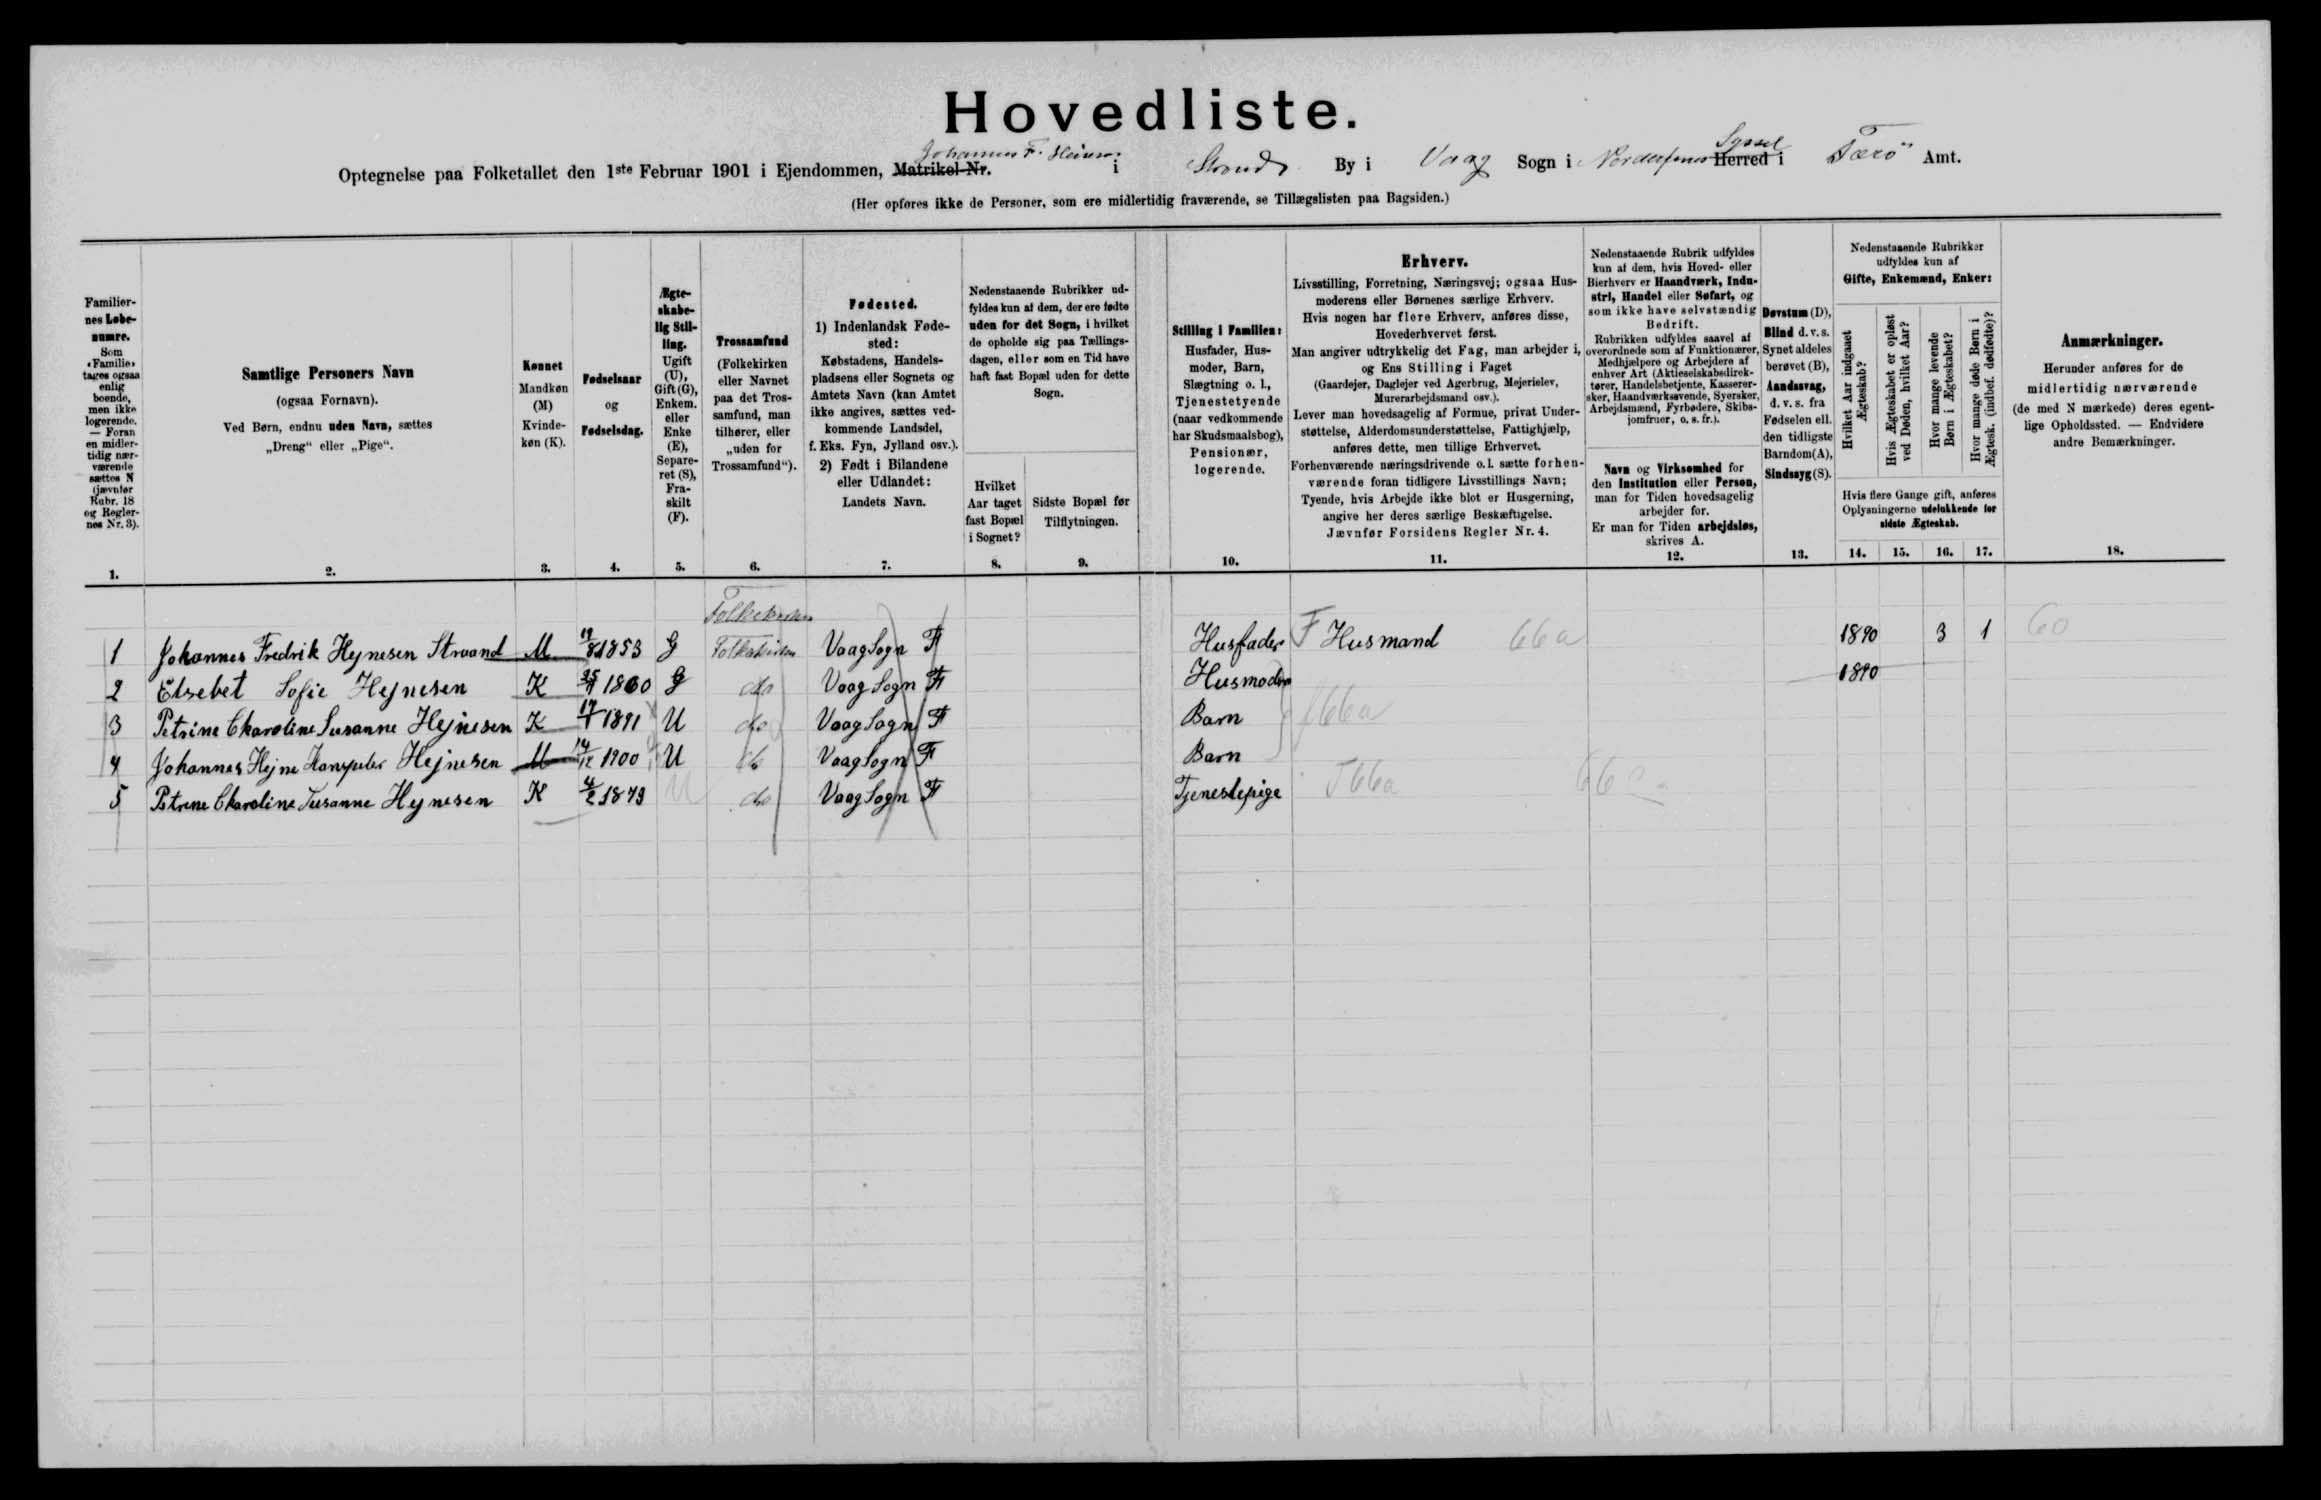 Hovedliste.
Optegnelse paa Folketallet den 1ste Februar 1901 i Ejendommen, Matrikel-Nr. Johannes F. i Strond By i Vaag Sogn i Norderøernes Herred Syssel i Færö Amt.
(Her opføres ikke de Personer, som ere midlertidig fraværende, se Tillægslisten paa Bagsiden.)
Familiernes Løbenumre.
Som «Familie» tages ogsaa enlig boende, men ikke logerende. — Foran en midlertidig nærværende sættes N (jævnfør Rubr. 18 og Reglernes Nr. 3).
1.
Samtlige Personers Navn
(ogsaa Fornavn).
Ved Børn, endnu uden Navn, sættes „Dreng“ eller „Pige“.
2.
Kønnet
Mandkøn (M)
Kvindekøn (K).
3.
Fødselsaar
og
Fødselsdag.
4.
Ægteskabelig Stilling.
Ugift (U), Gift (G), Enkem. eller Enke (E), Separeret (S), Fraskilt (F).
5.
Trossamfund
(Folkekirken eller Navnet paa det Trossamfund, man tilhører, eller „uden for Trossamfund“).
6.
Fødested.
1) Indenlandsk Fødested:
Købstadens, Handelspladsens eller Sognets og Amtets Navn (kan Amtet ikke angives, sættes vedkommende Landsdel, f. Eks. Fyn, Jylland osv.).
2) Født i Bilandene eller Udlandet:
Landets Navn.
7.
Nedenstaaende Rubrikker udfyldes kun af dem, der ere fødte uden for det Sogn, i hvilket de opholde sig paa Tællingsdagen, eller som en Tid have haft fast Bopæl uden for dette Sogn.
Hvilket Aar taget fast Bopæl i Sognet?
8.
Sidste Bopæl før Tilflytningen.
9.
Stilling i Familien:
Husfader, Husmoder, Barn, Slægtning o. l., Tjenestetyende (naar vedkommende har Skudsmaalsbog), Pensionær, logerende.
10.
Erhverv.
Livsstilling, Forretning, Næringsvej; ogsaa Husmoderens eller Børnenes særlige Erhverv.
Hvis nogen har flere Erhverv, anføres disse, Hovederhvervet først.
Man angiver udtrykkelig det Fag, man arbejder i, og Ens Stilling i Faget
(Gaardejer, Daglejer ved Agerbrug, Mejerielev, Murerarbejdsmand osv.).
Lever man hovedsagelig af Formue, privat Understøttelse, Alderdomsunderstøttelse, Fattighjælp, anføres dette, men tillige Erhvervet.
Forhenværende næringsdrivende o. l. sætte forhenværende foran tidligere Livsstillings Navn;
Tyende, hvis Arbejde ikke blot er Husgerning, angive her deres særlige Beskæftigelse.
Jævnfør Forsidens Regler Nr. 4.
11.
Nedenstaaende Rubrik udfyldes kun af dem, hvis Hoved- eller Bierhverv er Haandværk, Industri, Handel eller Søfart, og som ikke have selvstændig Bedrift.
Rubrikken udfyldes saavel af overordnede som af Funktionærer, Medhjælpere og Arbejdere af enhver Art (Aktieselskabsdirektører, Handelsbetjente, Kasserersker, Haandværksvende, Syersker, Arbejdsmænd, Fyrbødere, Skibsjomfruer, o. s. fr.).
Navn og Virksomhed for den Institution eller Person, man for Tiden hovedsagelig arbejder for.
Er man for Tiden arbejdsløs, skrives A.
12.
Døvstum (D), Blind d. v. s. Synet aldeles berøvet (B), Aandssvag, d. v. s. fra Fødselen ell. den tidligste Barndom (A), Sindssyg (S).
13.
Nedenstaaende Rubrikker udfyldes kun af
Gifte, Enkemænd, Enker:
Hvilket Aar indgaaet Ægteskab?
Hvis Ægteskabet er opløst ved Døden, hvilket Aar?
Hvor mange levende Børn i Ægteskabet?
Hvor mange døde Børn i Ægtesk. (indbef. dødfødte)?
Hvis flere Gange gift, anføres Oplysningerne udelukkende for sidste Ægteskab.
14. 15. 16. 17.
Anmærkninger.
Herunder anføres for de midlertidig nærværende (de med N mærkede) deres egentlige Opholdssted. — Endvidere andre Bemærkninger.
18.
Folkekirken
1 Johannes Fredrik Hejnesen Straand M 19/8 1853 G Folkekirken Vaag Sogn F Husfader F Husmand 66a 1890 3 1 60
2 Elsebet Sofie Hejnesen K 25/1 1860 G do Vaag Sogn F Husmoder 1890
3 Petrine Charoline Susanne Hejnesen K 17/1 1891 U do Vaag Sogn F Barn f66a
4 Johannes Hejne Hanspeter Hejnesen M 14/12 1900 U do Vaag Sogn F Barn
5 Petrine Charoline Susanne Hejnesen K 4/2 1879 U do Vaag Sogn F Tjenestepige T66a